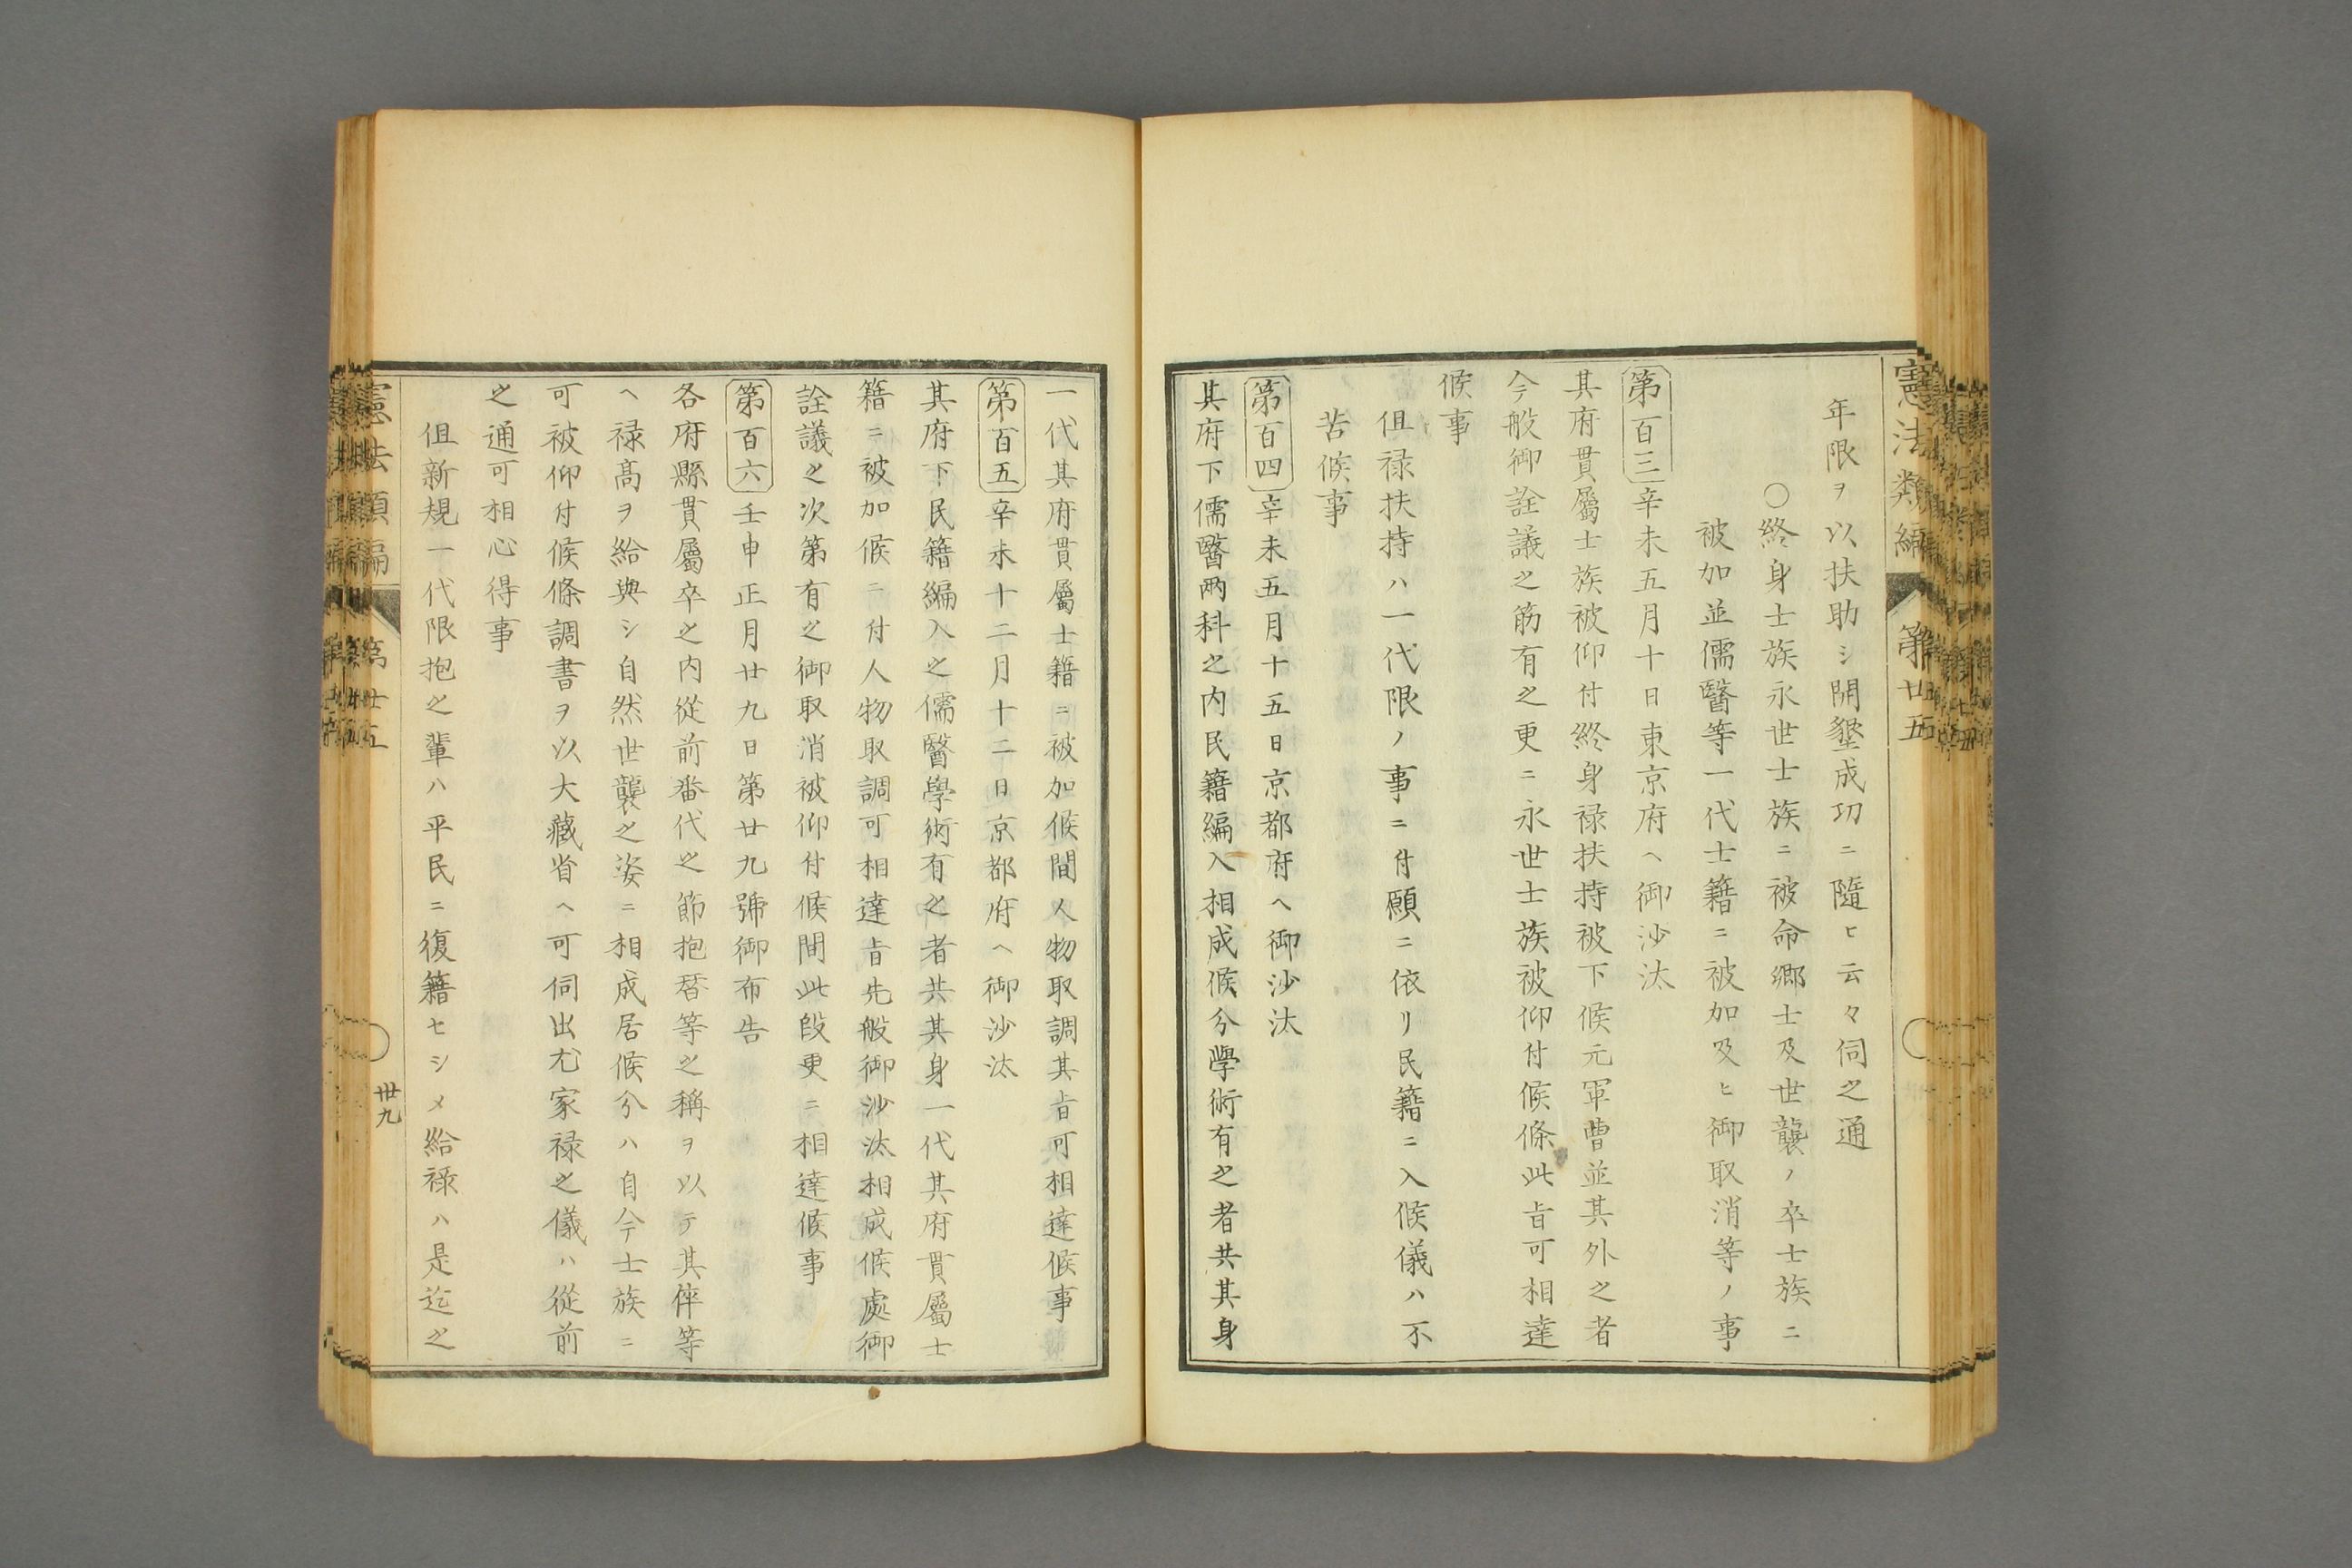 憲法類編 第廿五
年限ヲ以扶助シ開墾成功ニ隨ヒ云々伺之通
〇終身士族永世士族ニ被命鄉士及世襲ノ卒士族ニ
被加並儒醫等一代士籍ニ被加及ヒ御取消等ノ事
第百三 辛未五月十日東京府ヘ御沙汰
其府貫屬士族被仰付終身祿扶持被下候元軍曹並其外之者
今般御詮議之筋有之更ニ永世士族被仰付候條此旨可相達
候事
但祿扶持ハ一代限ノ事ニ付願ニ依リ民籍ニ入候儀ハ不
苦候事
第百四 辛未五月十五日京都府ヘ御沙汰
其府下儒醫兩科之内民籍編入相成候分學術有之者共其身
一代其府貫屬士籍ニ被加候間人物取調其旨可相達候事
第百五 辛未十二月十二日京都府ヘ御沙汰
其府下民籍編入之儒醫學術有之者共其身一代其府貫屬士
籍ニ被加候ニ付人物取調可相達旨先般御沙汰相成候處御
詮議之次第有之御取消被仰付候間此段更ニ相達候事
第百六 壬申正月廿九日第廿九號御布告
各府縣貫屬卒之内從前番代之節抱替等之稱ヲ以テ其倅等
ヘ祿高ヲ給與シ自然世襲之姿ニ相成居候分ハ自今士族ニ
可被仰付候條調書ヲ以大藏省ヘ可伺出尤家祿之儀ハ從前
之通可相心得事
但新規一代限抱之輩ハ平民ニ復籍セシメ給祿ハ是迄之
憲法類編 第廿五 卅九